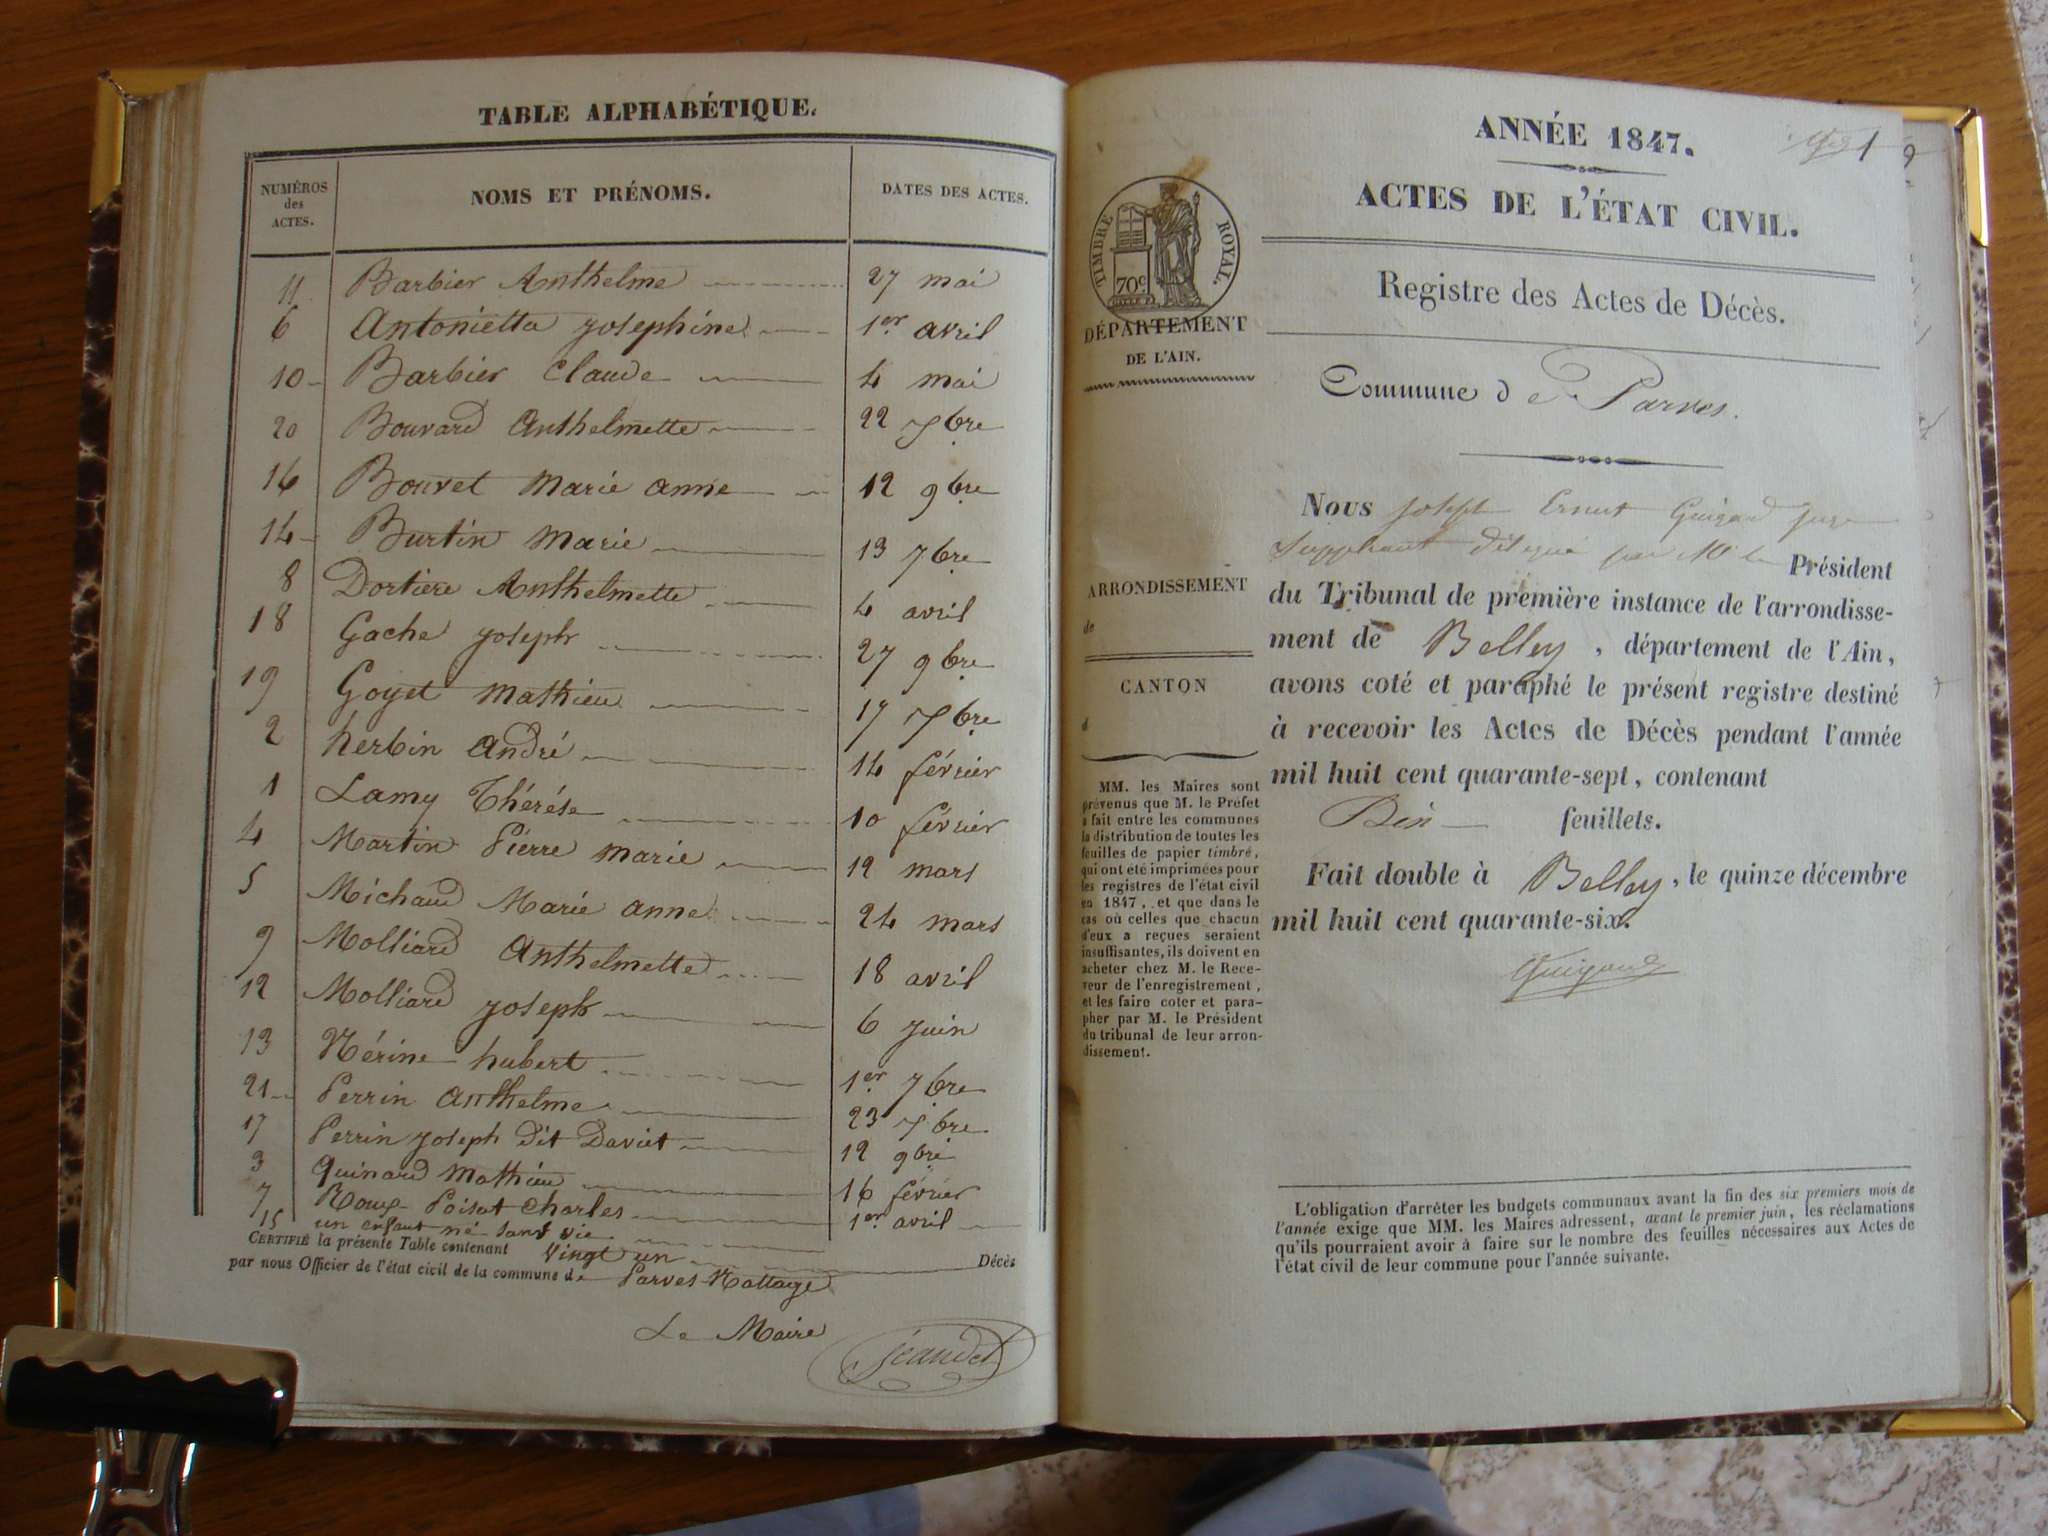 TABLE ALPHABÉTIQUE.
NUMÉROS des ACTES. NOMS ET PRÉNOMS. DATES DES ACTES.
11 Barbier Anthelme 27 mai
6 Antonietta Josephine 1er avril
10 Barbier Claude 4 mai
20 Bouvard Anthelmette 22 Xbre
16 Bouvet Marie anne 12 9bre
14 Burtin Marie 13 7bre
8 Dortiere Anthelmette 4 avril
18 Gache Joseph 27 9bre
19 Goyet Mathieu 17 Xbre
2 herbin André 14 février
1 Lamy Thérése 10 février
4 Martin Pierre marie 12 mars
5 Michaud Marie anne 24 mars
9 Molliard Anthelmette 18 avril
12 Molliard Joseph 6 Juin
13 Nérine hubert 1er 7bre
21 Perrin Anthelme 23 Xbre
17 Perrin Joseph dit Daviet 12 9bre
3 Quinard Mathieu 16 février
7 Roux Poisat Charles 1er avril
15 un enfant né sans vie
CERTIFIÉ la présente Table contenant vingt un Décès
par nous Officier de l'état civil de la commune de Parves Nattage
Le Maire
ANNÉE 1847.
1
ACTES DE L'ÉTAT CIVIL.
TIMBRE ROYAL.
70c
DÉPARTEMENT
DE L'AIN.
Registre des Actes de Décès.
Commune de Parves.
ARRONDISSEMENT
de
CANTON
d
MM. les Maires sont
prévenus que M. le Préfet
a fait entre les communes
la distribution de toutes les
feuilles de papier timbré,
qui ont été imprimées pour
les registres de l'état civil
en 1847, et que dans le
cas où celles que chacun
d'eux a reçues seraient
insuffisantes, ils doivent en
acheter chez M. le Rece-
veur de l'enregistrement,
et les faire coter et para-
pher par M. le Président
du tribunal de leur arron-
dissement.
Nous Joseph Ernest Guigard Juge
Suppléant délégué par Mr le Président
du Tribunal de première instance de l'arrondisse-
ment de Belley, département de l'Ain,
avons coté et paraphé le présent registre destiné
à recevoir les Actes de Décès pendant l'année
mil huit cent quarante-sept, contenant
feuillets.
Fait double à Belley, le quinze décembre
mil huit cent quarante-six.
L'obligation d'arrêter les budgets communaux avant la fin des six premiers mois de
l'année exige que MM. les Maires adressent, avant le premier juin, les réclamations
qu'ils pourraient avoir à faire sur le nombre des feuilles nécessaires aux Actes de
l'état civil de leur commune pour l'année suivante.